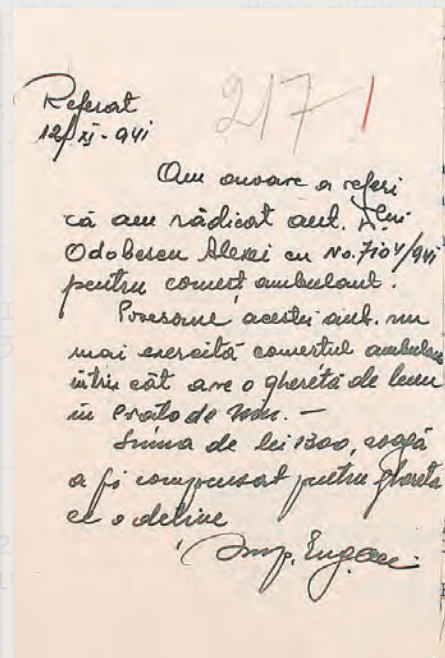 217 1
Referat
12/XI-941
Am onoare a referi
că am rădicat aut. Dlui
Odobescu Alexei cu No. 7104/941
pentru comerț ambulant.
acestei aut. nu
mai exercită comerțul ambulant
întru cât are o gheretă de lemn
în de
Suma de lei 1300, roagă
a fi compensat pentru ghereta
ce o deține